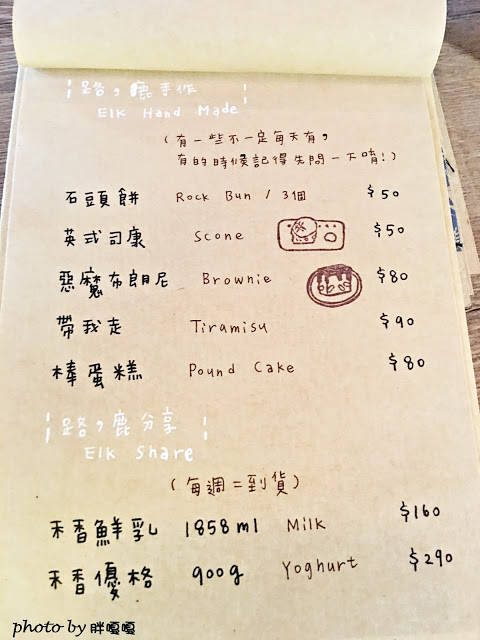 路,鹿手作
Elk Hand Made
(有一些不一定每天有,
有的時候記得先問一下唷!)
石頭餅 Rock Bun / 3個 $50
英式司康 Scone $50
惡魔布朗尼 Brownie $80
帶我走 Tiramisu $90
棒蛋糕 Pound Cake $80
路,鹿分享
Elk Share
(每週二到貨)
禾香鮮乳 1858ml Milk $160
禾香優格 900g Yoghurt $290
photo by 胖嘎嘎